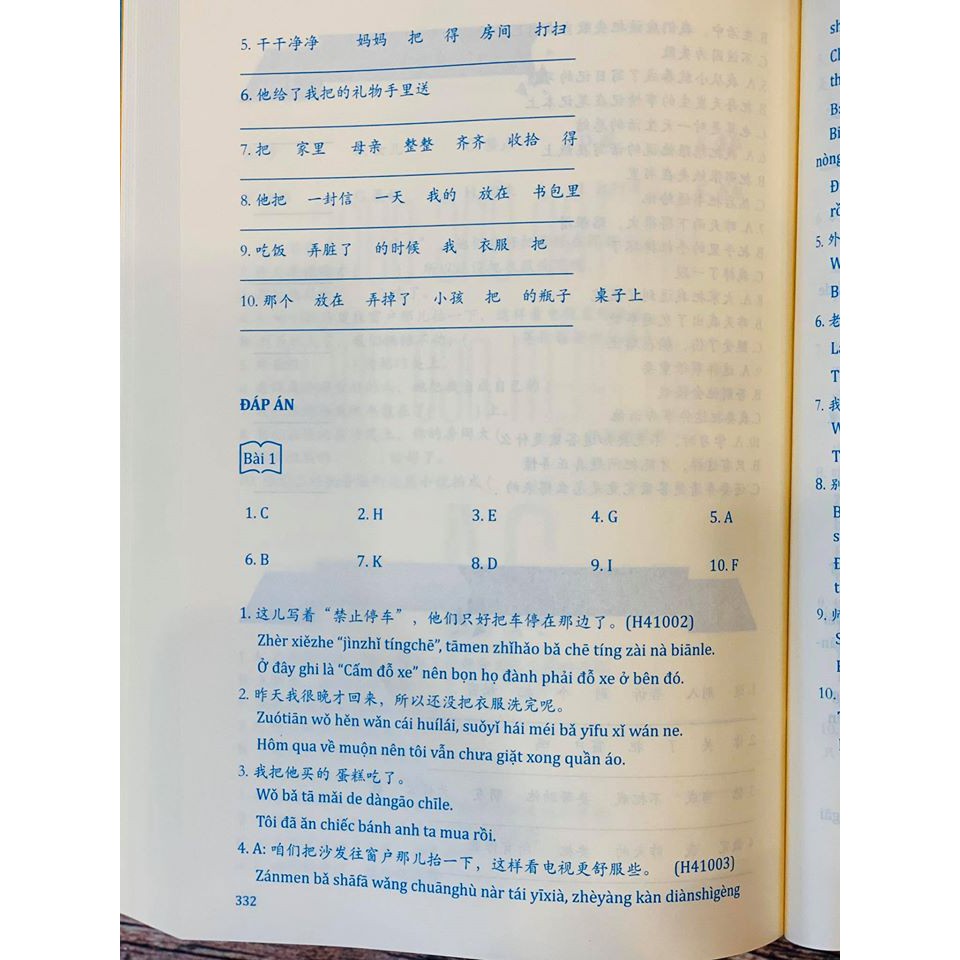 5. 干干净净 妈妈 把 得 房间 打扫
6. 他给了我把的礼物手里送
7. 把 家里 母亲 整整 齐齐 收拾 得
8. 他把 一封信 一天 我的 放在 书包里
9. 吃饭 弄脏了 的时候 我 衣服 把
10. 那个 放在 弄掉了 小孩 把 的瓶子 桌子上
ĐÁP ÁN
Bài 1
1. C 2. H 3. E 4. G 5. A
6. B 7. K 8. D 9. I 10. F
1. 这儿写着“禁止停车”，他们只好把车停在那边了。(H41002)
Zhèr xiězhe “jìnzhǐ tíngchē”, tāmen zhǐhǎo bǎ chē tíng zài nà biānle.
Ở đây ghi là “Cấm đỗ xe” nên bọn họ đành phải đỗ xe ở bên đó.
2. 昨天我很晚才回来，所以还没把衣服洗完呢。
Zuótiān wǒ hěn wǎn cái huílái, suǒyǐ hái méi bǎ yīfu xǐ wán ne.
Hôm qua về muộn nên tôi vẫn chưa giặt xong quần áo.
3. 我把他买的 蛋糕吃了。
Wǒ bǎ tā mǎi de dàngāo chīle.
Tôi đã ăn chiếc bánh anh ta mua rồi.
4. A: 咱们把沙发往窗户那儿抬一下，这样看电视更舒服些。 (H41003)
Zánmen bǎ shāfā wǎng chuānghù nàr tái yīxià, zhèyàng kàn diànshìgèng
332
5. 外
6. 老
7. 我
8. 别
9. 师
10.